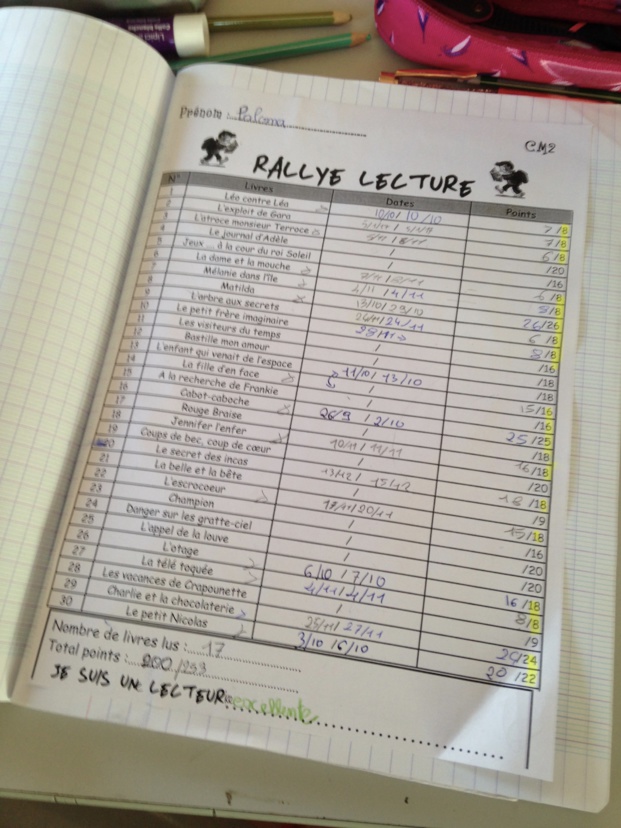 Prénom : Paloma
CM2
RALLYE LECTURE
N° Livres Dates Points
1 Léa contre Léa
2 L'exploit de Gara
3 L'atroce monsieur Terroce
4 Le journal d'Adèle
5 Jeux ... à la cour du roi Soleil
6 La dame et la mouche
7 Mélanie dans l'île
8 Matilda
9 L'arbre aux secrets
10 Le petit frère imaginaire
11 Les visiteurs du temps
12 Bastille mon amour
13 L'enfant qui venait de l'espace
14 La fille d'en face
15 A la recherche de Frankie
16 Cabot-caboche
17 Rouge Braise
18 Jennifer l'enfer
19 Coups de bec, coup de cœur
20 Le secret des incas
21 La belle et la bête
22 L'escrocoeur
23 Champion
24 Danger sur les gratte-ciel
25 L'appel de la louve
26 L'otage
27 La télé toquée
28 Les vacances de Crapounette
29 Charlie et la chocolaterie
30 Le petit Nicolas
10/10/ 10/10
/
/
4/11 / 4/11
13/10 / 29/10
24/11 / 24/11
/
/
11/10 / 13/10
/
26/9 / 2/10
/
10/11 / 11/11
/
13/12 / 15/12
17/11 / 20/11
/
/
/
6/10 / 7/10
4/11 / 4/11
/
25/11 / 27/11
3/10 / 6/10
7/8
7/8
6/8
/20
/16
/8
8/8
26/26
6/8
8/8
/16
/18
/18
15/16
25/25
/18
16/18
/20
18/18
/9
15/18
/16
/20
/20
16/18
8/8
/9
24/24
20/22
Nombre de livres lus : 17
Total points : 200/253
JE SUIS UN LECTEUR excellente